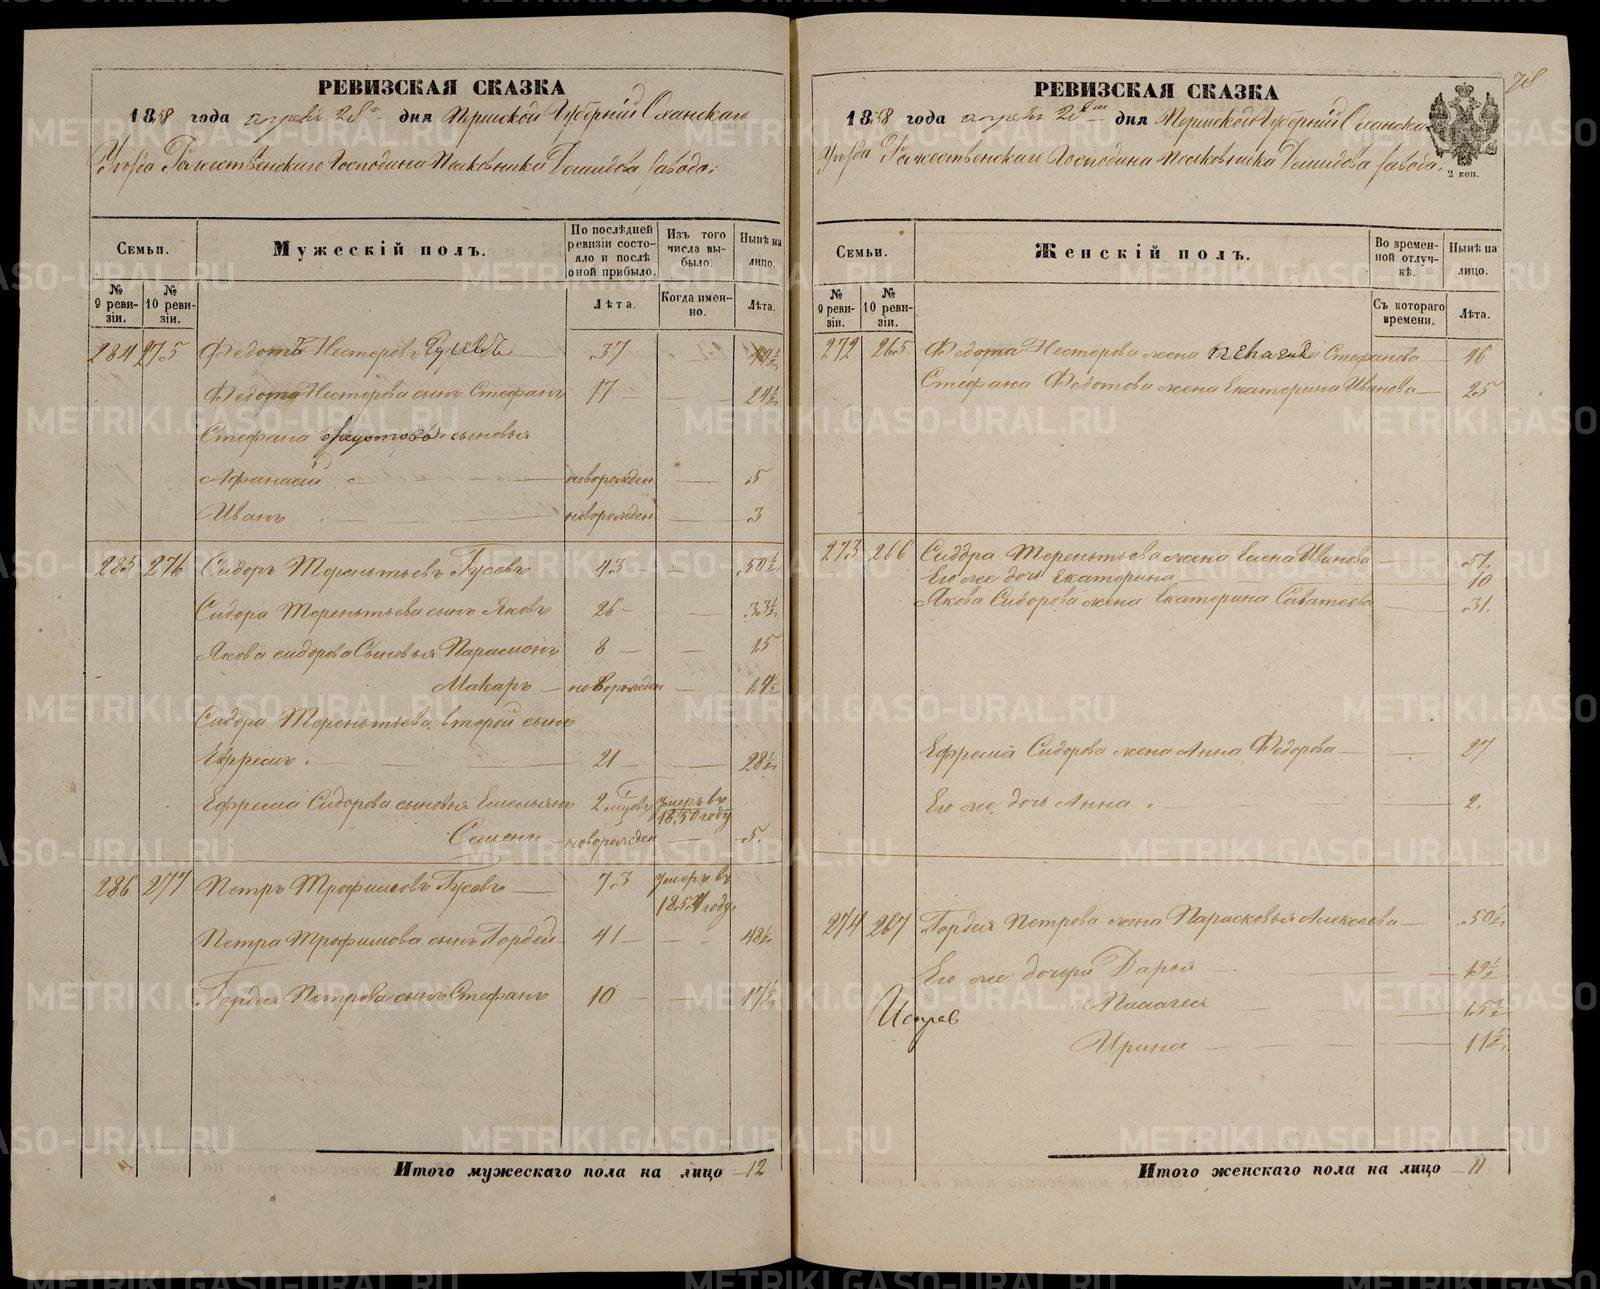 РЕВИЗСКАЯ СКАЗКА
1858 года апреля 28го дня Пермской Губернiи Оханскаго
Уезда Рожественскаго Господина Полковника Демидова завода.
Семьи.
Мужескiй полъ.
По послѣдней ревизiи состояло и послѣ оной прибыло.
Изъ того числа выбыло.
Нынѣ на лицо.
№ 9 ревизiи.
№ 10 ревизiи.
Лѣта.
Когда именно.
Лѣта.
284 275 Федотъ Нестеровъ Гусевъ 37 44½
Федота Нестерова сынъ Стефанъ 17 24½
Стефана Федотова сыновья
Афанасiй новорожден 5
Иванъ новорожден 3
285 276 Сидоръ Терентьевъ Гусевъ 43 50½
Сидора Терентьева сынъ Яковъ 26 33½
Якова Сидорова Сыновья Парамонъ 8 15
Макаръ новорожден 1.4½
Сидора Терентьева второй сынъ
Ефремъ 21 28½
Ефрема Сидорова сыновья Емельянъ 2 месяцовъ умеръ въ 1850 году
Семенъ новорожден 5.
286 277 Петръ Трофимовъ Гусевъ 73 Умеръ въ 1854 году.
Петра Трофимова сынъ Гордей 41 48½
Гордея Петрова сынъ Стефанъ 10 17½
Итого мужескаго пола на лицо 12
78
РЕВИЗСКАЯ СКАЗКА
1858 года апреля 28го дня Пермской Губернiи Оханскаго
Уезда Рожественскаго Господина Полковника Демидова завода.
2 коп.
Семьи.
Женскiй полъ.
Во временной отлучкѣ.
Нынѣ на лицо.
№ 9 ревизiи.
№ 10 ревизiи.
Съ котораго времени.
Лѣта.
272 265 Федота Нестерова жена Пелагия Стефанова 46
Стефана Федотова жена Екатерина Иванова 25
273 266 Сидора Терентьева жена Елена Иванова 51.
Его же дочь Екатерина 10
Якова Сидорова жена Екатерина Саватеева 31.
Ефрема Сидорова жена Анна Федорова 27
Его же дочь Анна 2.
274 267 Гордея Петрова жена Парасковья Алексеева 50½
Его же дочери Дарья 19½
Палагея 15½
Исправ
Ирина 11½
Итого женскаго пола на лицо 11
METRIKI.GASO-URAL.RU